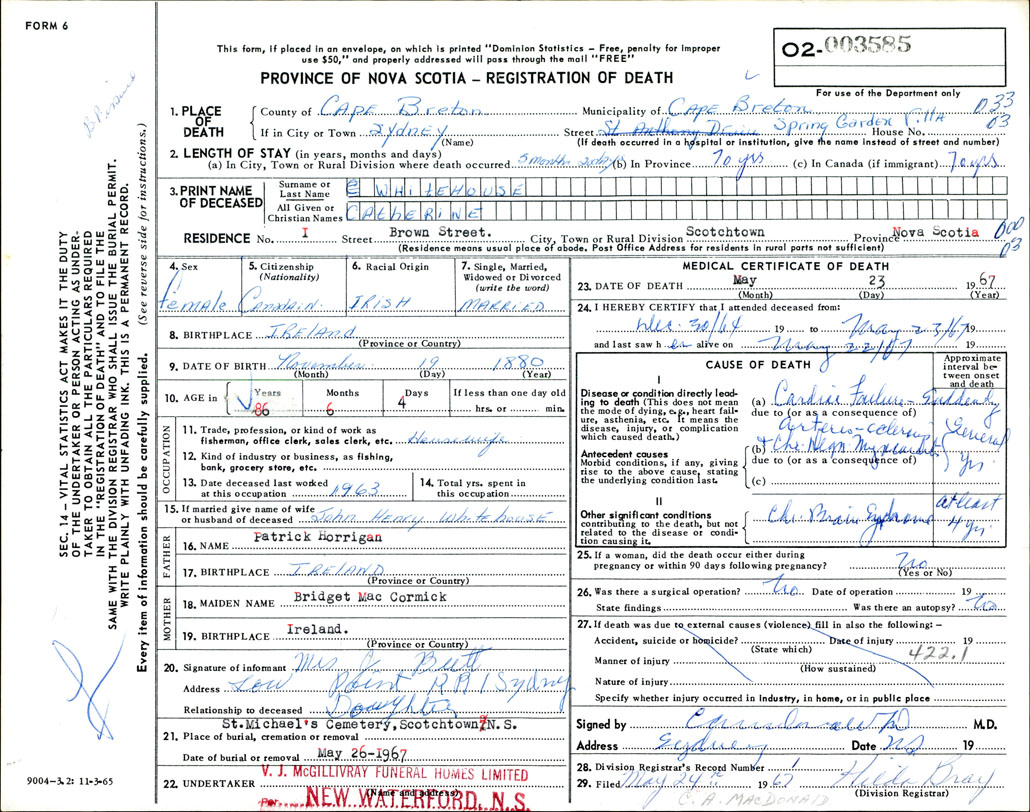 FORM 6
This form, if placed in an envelope, on which is printed "Dominion Statistics – Free, penalty for improper
use $50," and properly addressed will pass through the mail "FREE"
PROVINCE OF NOVA SCOTIA – REGISTRATION OF DEATH
02-003585
For use of the Department only
033
03
1. PLACE OF DEATH
County of CAPE Breton Municipality of CAPE Breton
If in City or Town Sydney (Name) Street St Anthony Drive Spring Garden Villa House No.
(If death occurred in a hospital or institution, give the name instead of street and number)
2. LENGTH OF STAY (in years, months and days)
(a) In City, Town or Rural Division where death occurred 5 months 20 days (b) In Province 70 yrs (c) In Canada (if immigrant) 70 yrs
3. PRINT NAME OF DECEASED
Surname or Last Name WHITEHOUSE
All Given or Christian Names CATHERINE
RESIDENCE No. I Street Brown Street. City, Town or Rural Division Scotchtown Province Nova Scotia
(Residence means usual place of abode. Post Office Address for residents in rural parts not sufficient)
000
03
4. Sex Female
5. Citizenship (Nationality) Canadain.
6. Racial Origin IRISH
7. Single, Married, Widowed or Divorced (write the word) MARRIED
8. BIRTHPLACE IRELAND
(Province or Country)
9. DATE OF BIRTH November 19 1880
(Month) (Day) (Year)
10. AGE in Years 86 Months 6 Days 4 If less than one day old hrs. or min.
OCCUPATION
11. Trade, profession, or kind of work as fisherman, office clerk, sales clerk, etc. Housewife
12. Kind of industry or business, as fishing, bank, grocery store, etc.
13. Date deceased last worked at this occupation 1963
14. Total yrs. spent in this occupation
15. If married give name of wife or husband of deceased John Henry Whitehouse
FATHER
16. NAME Patrick Horrigan
17. BIRTHPLACE IRELAND
(Province or Country)
MOTHER
18. MAIDEN NAME Bridget Mac Cormick
19. BIRTHPLACE Ireland.
(Province or Country)
20. Signature of informant Mrs J Butt
Address Low Point RR 1 Sydney
Relationship to deceased Daughter
St.Michael's Cemetery, Scotchtown N.S.
21. Place of burial, cremation or removal
Date of burial or removal May 26-1967
22. UNDERTAKER V. J. McGILLIVRAY FUNERAL HOMES LIMITED
(Name and address)
Per. NEW WATERFORD, N.S.
MEDICAL CERTIFICATE OF DEATH
23. DATE OF DEATH May 23 1967
(Month) (Day) (Year)
24. I HEREBY CERTIFY that I attended deceased from:
Dec. 30/64 19 to May 23/67 19
and last saw her alive on May 22/67 19
CAUSE OF DEATH
Approximate interval between onset and death
I
Disease or condition directly leading to death (This does not mean the mode of dying, e.g., heart failure, asthenia, etc. It means the disease, injury, or complication which caused death.)
(a) Cardiac Failure Suddenly
due to (or as a consequence of)
Antecedent causes
Morbid conditions, if any, giving rise to the above cause, stating the underlying condition last.
Arterio-sclerosis
(b) + Chr. Degn Myocarditis
due to (or as a consequence of)
(c)
yrs.
II
Other significant conditions
contributing to the death, but not related to the disease or condition causing it.
Chr. Brain Syndrome at least 4 yrs
25. If a woman, did the death occur either during pregnancy or within 90 days following pregnancy? No
(Yes or No)
26. Was there a surgical operation? No Date of operation 19
State findings Was there an autopsy? No
27. If death was due to external causes (violence) fill in also the following: –
Accident, suicide or homicide? Date of injury 19
(State which)
422.1
Manner of injury
(How sustained)
Nature of injury
Specify whether injury occurred in industry, in home, or in public place
Signed by M.D.
Address Sydney Date NS 19
28. Division Registrar's Record Number 1
29. Filed May 24th 1967 Hilda Bray
(Division Registrar)
C. A. MACDONALD
SEC. 14 – VITAL STATISTICS ACT MAKES IT THE DUTY
OF THE UNDERTAKER OR PERSON ACTING AS UNDER-
TAKER TO OBTAIN ALL THE PARTICULARS REQUIRED
IN THE "REGISTRATION OF DEATH" AND TO FILE THE
SAME WITH THE DIVISION REGISTRAR WHO SHALL ISSUE THE BURIAL PERMIT.
WRITE PLAINLY WITH UNFADING INK. THIS IS A PERMANENT RECORD.
Every item of information should be carefully supplied. (See reverse side for instructions.)
9004-3.2: 11-3-65